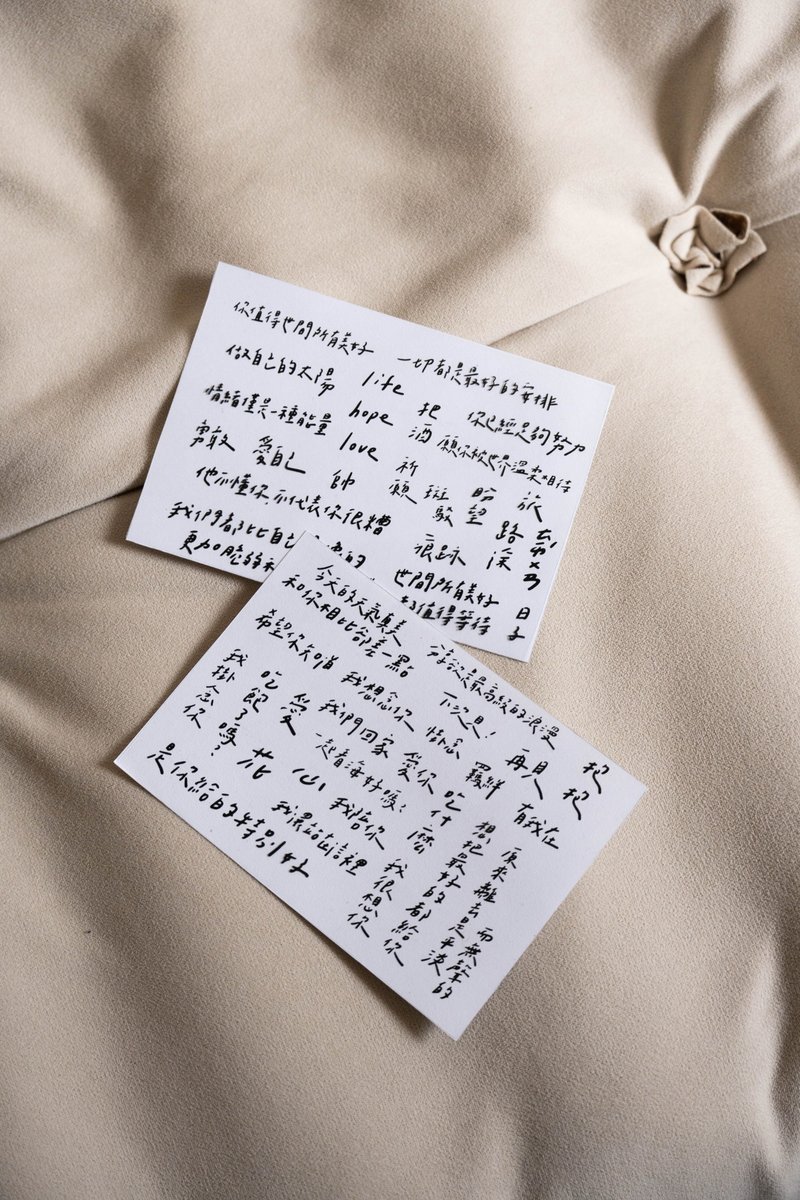 你值得世間所有美好
一切都是最好的安排
做自己的太陽
life
你已經足夠努力
情緒僅是一種能量
hope
把酒
願你被世界溫柔相待
勇敢
愛自己
love
祈願
斑駁
盼望
旅
帥
路
深
他不懂你不代表你很糟
痕跡
我們都比自己
的
世間所有美好
值得等待
日子
更加膽
今天的天氣真美
和你相比都差一點
分享欲是最高級的浪漫
希望你知道
我想念你
下次見!
再見
抱抱
我掛念你
吃飽了嗎?
愛
我們回家
掛念
一起看海好嗎?
愛你
有我在
花心
我陪你
吃什麼
想把最好的都給你
原來離去是平淡
而無聲的
是你給的特別好
我很想你